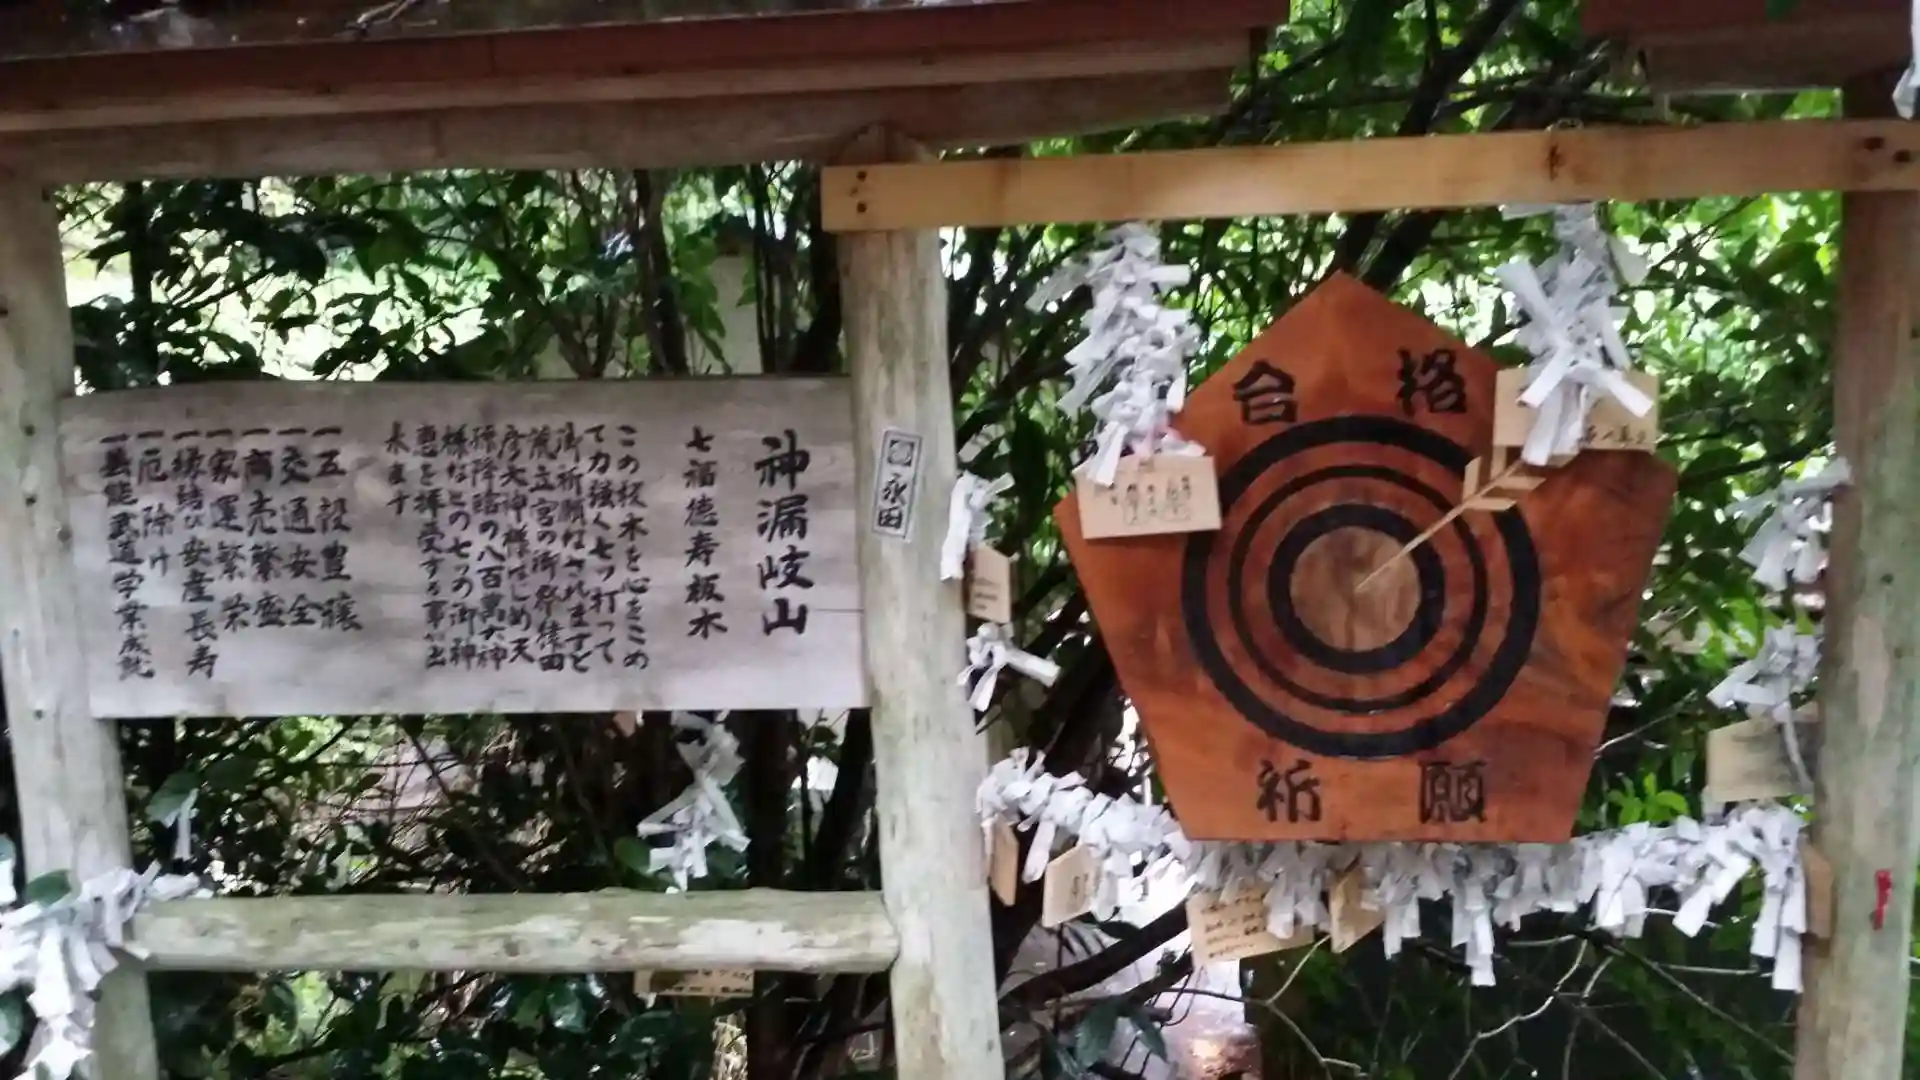 神漏岐山
七福徳寿板木
この板木を心をこめ
て力強く七つ打って
御祈願なされますと
荒立宮の御祭徳田
彦大神様はじめ天
孫降臨の八百萬大神
様などの七つの御神
恵を拝受する事が出
来ます
一五穀豊穣
一交通安全
一商売繁盛
一家運繁栄
一縁結び安産長寿
一厄除け
一芸能武道学業成就
永田
合格
祈願